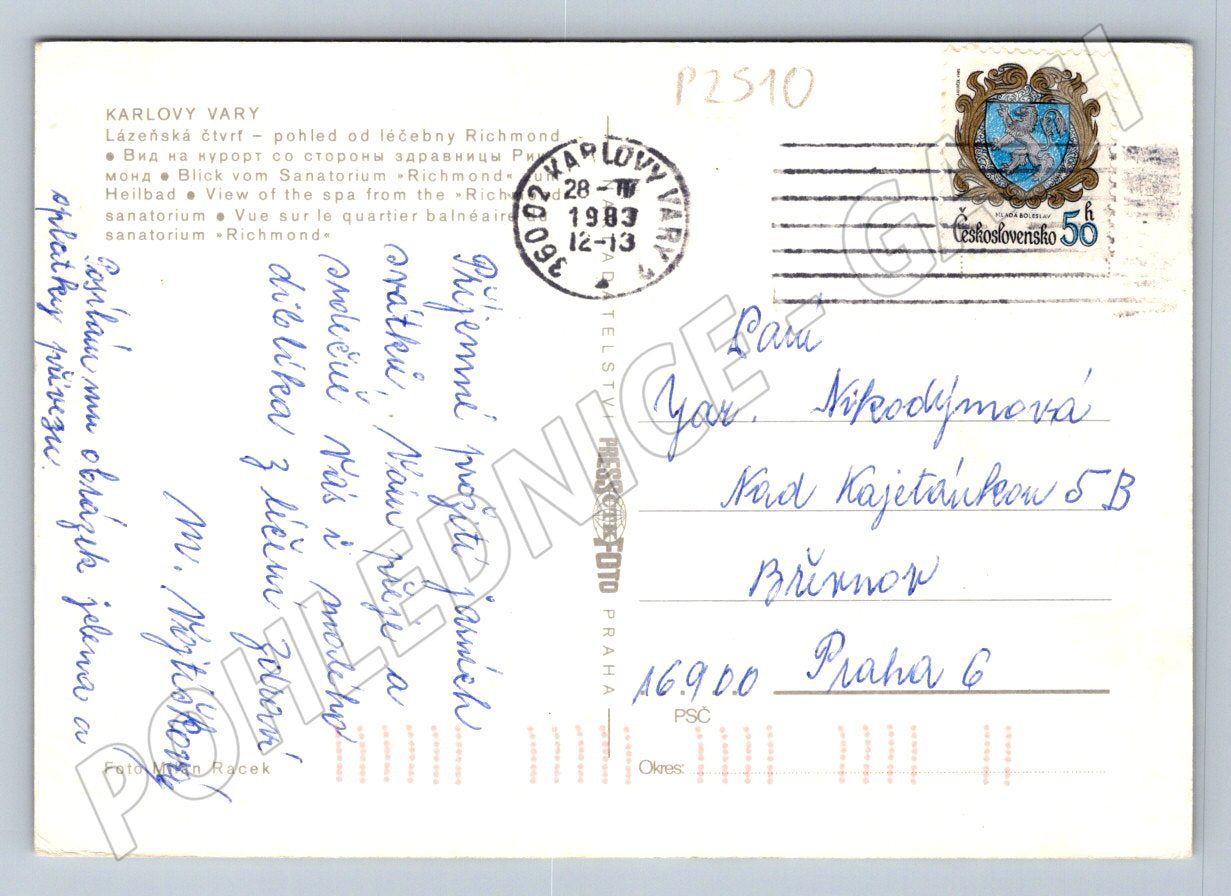 P2510
KARLOVY VARY
Lázeňská čtvrť – pohled od léčebny Richmond
● Вид на курорт со стороны здравницы Рич-
монд ● Blick vom Sanatorium »Richmond« zum
Heilbad ● View of the spa from the »Richmond«
sanatorium ● Vue sur le quartier balnéaire du
sanatorium »Richmond«
360 02 KARLOVY VARY 2
28-IV
1983
12-13
MLADÁ BOLESLAV
Československo 50h
Příjemné prožití jarních
svátků Vám přeje a
srdečně Vás i malého
z léčení zdraví
M.
Posílám mu obrázek jelena a
oplatky přivezu.
Paní
Jar. Nikodýmová
Nad Kajetánkou 5B
Břevnov
16900 Praha 6
PSČ
Okres:
NAKLADATELSTVÍ PRESSFOTO PRAHA
Foto Milan Racek
POHLEDNICE - GACH